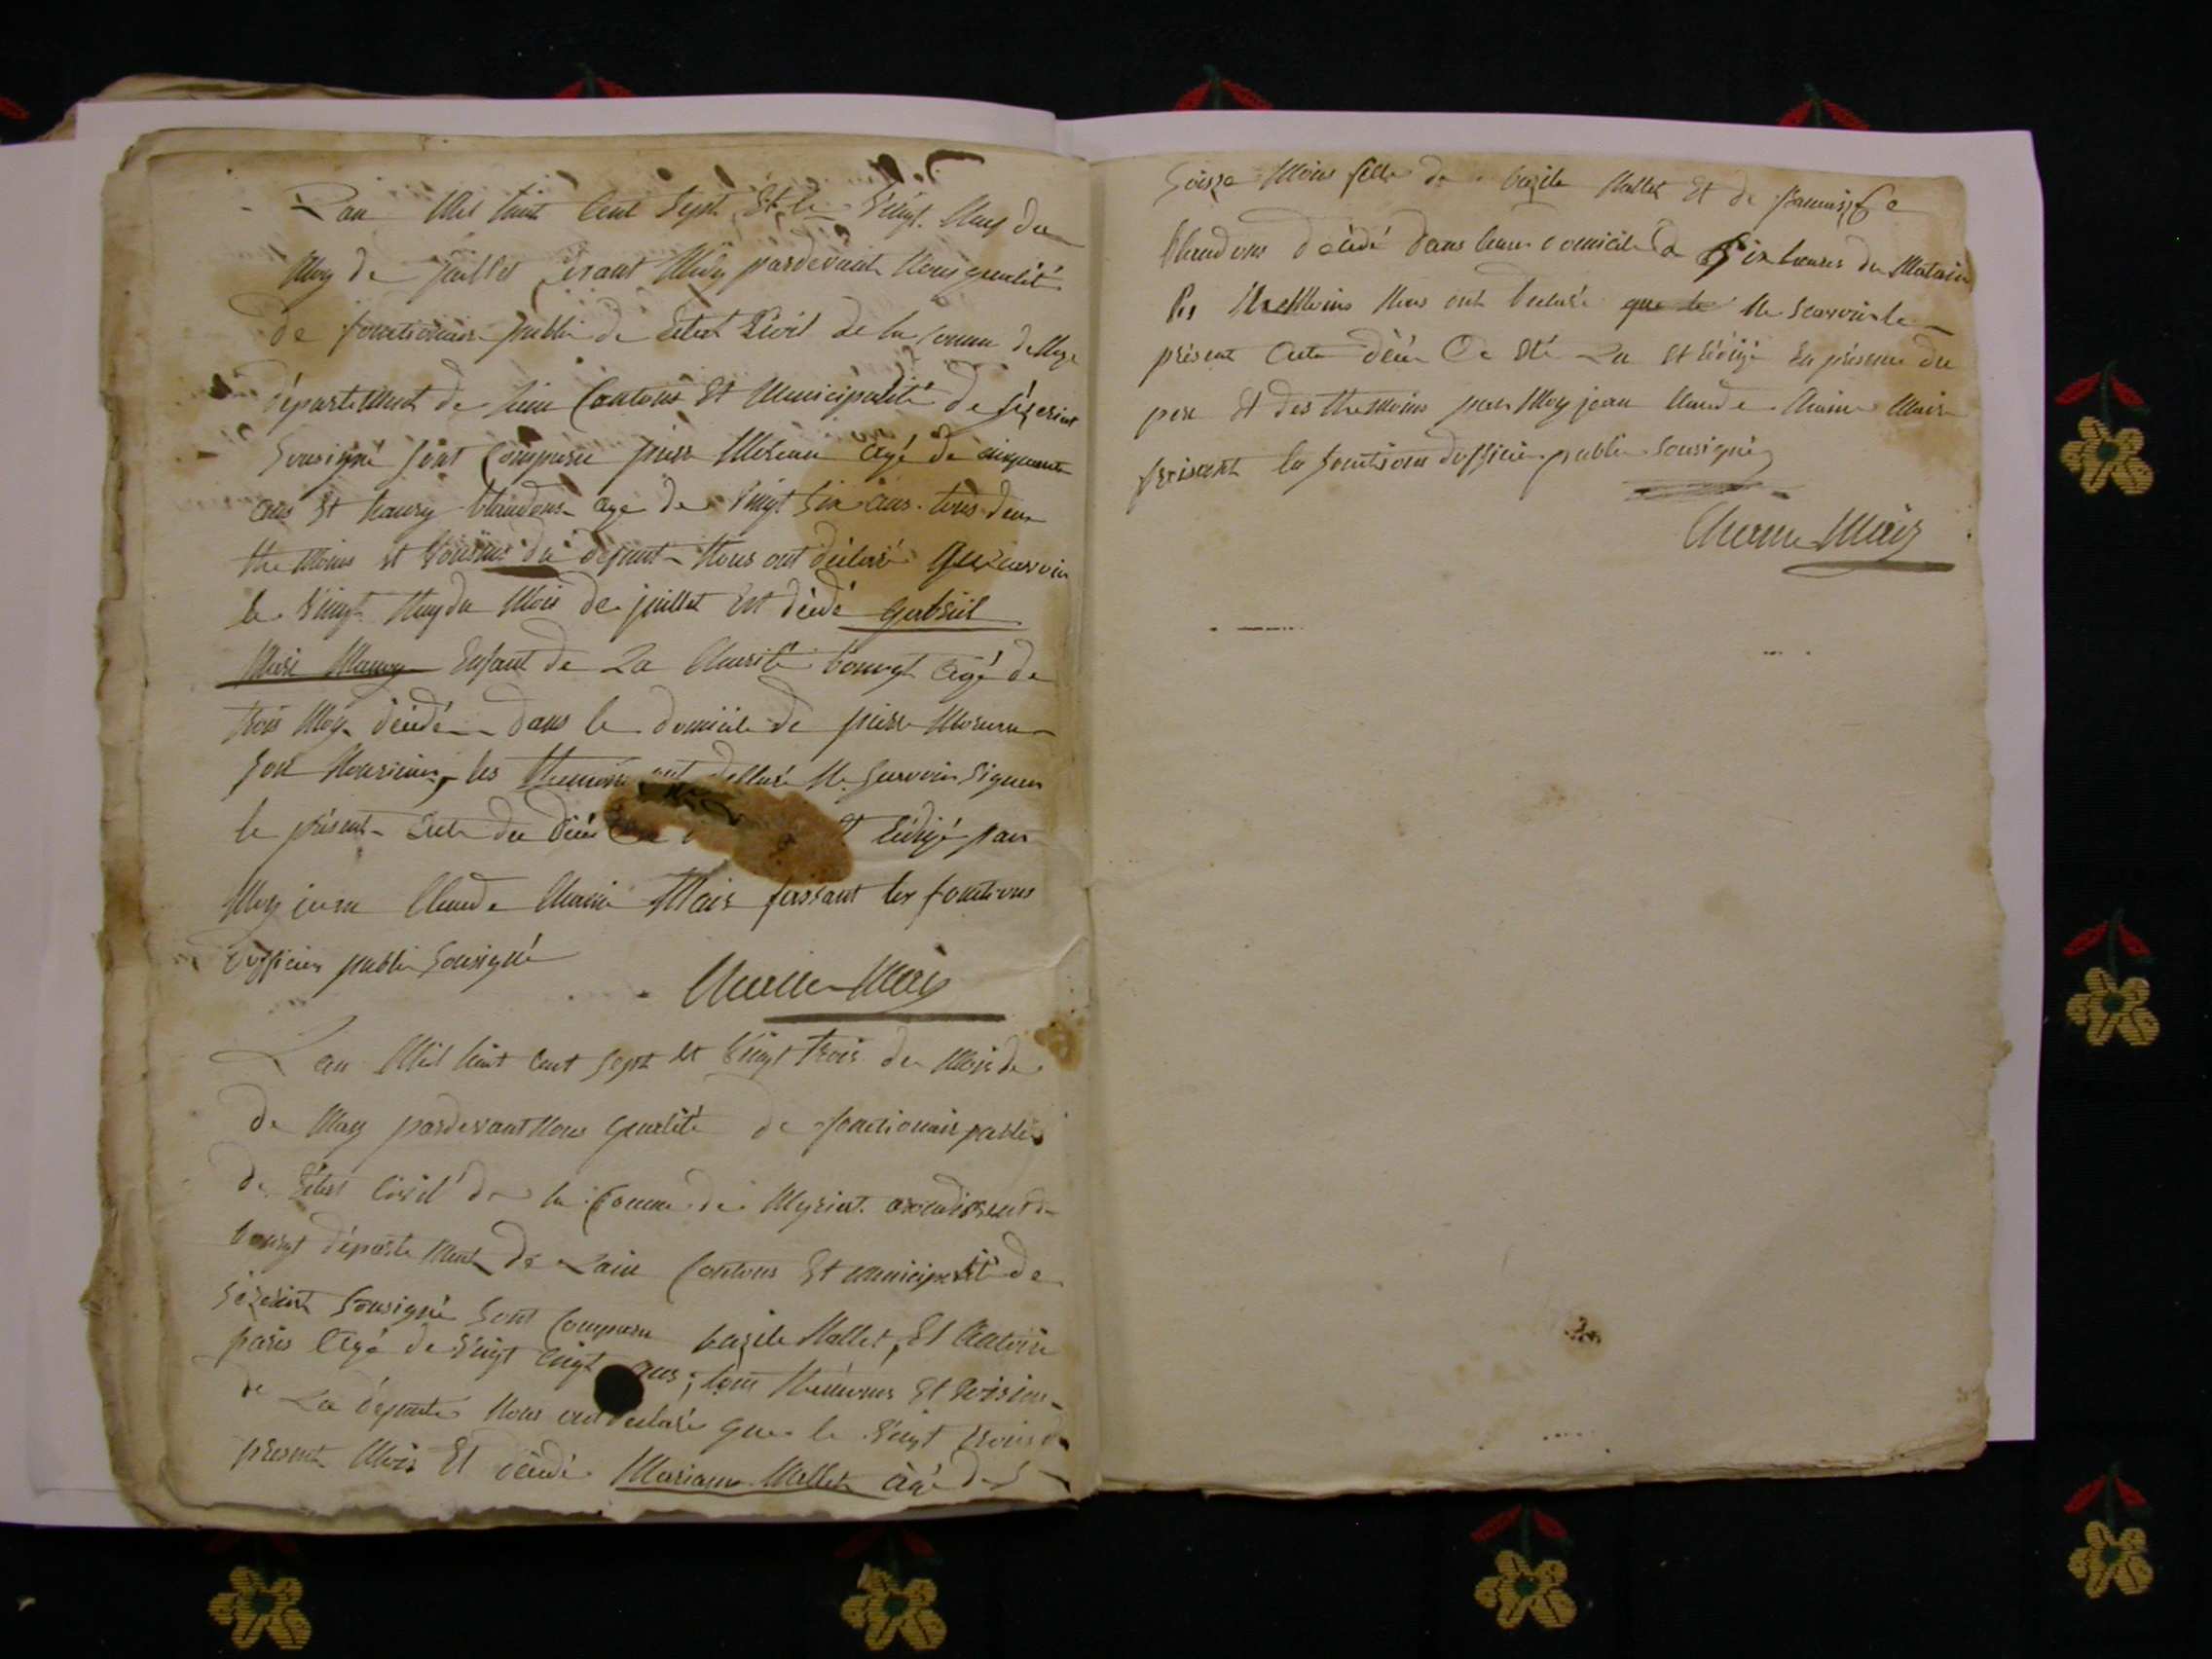 Lan Mil huit Cent Sept Et le Vingt Neuf du
Moy de juillet avant Midy pardevant Nous qualité
de fonctionair public de Letat Civil de la Comune de
département de Lain Cantons Et Municipalité de Séxeriat
Sousigné sont Comparu pierre Moreau agé de cinquante
ans Et blandons age de Vingt Six ans tous deux
the Moins et voisins du defunt Nous ont déclaré
le Vingt Neuf du Mois de juillet Est décédé gabriel
Marie Enfant de La Charité bourgt agé de
trois Moy décédé dans le domicile de pierre Moreau
Son Nouricier, les themoins ont dellaré Ne Scavoir Signer
le présent acte du décé Rédigé par
Moy jean Claude Maire faissant les fonctions
dofficier public Sousigné
Maire
Lan Mil huit Cent Sept et Vingt trois du Mois de
de May pardevant Nous qualité de fonctionair public
de Létat Civil de la Comune de Meyriat arondissent de
bourgt département de Lain Contons Et municipalité de
Séxeriat Sousigné Sont Comparu bazile Mallet, Et Antoine
paris Agé de Vingt Cingt ans; tous themoins Et Voisins
de La défunte Nous ont déclaré que le Vingt trois du
present Mois Et décédé Mariane Mallet agé de
Seisze Mois fille de bazile Mallet Et de
blandons décédé dans leur domicile a Six heures du Matain
les themoins Nous ont declaré que le Ne Scavoir le
présent Acte décé Ce Eté Lu et Rédigé En présence du
pere Et des themoins par Moy jean Claude Maire
faisant la fonctions dofficier public Sousigné
Maire